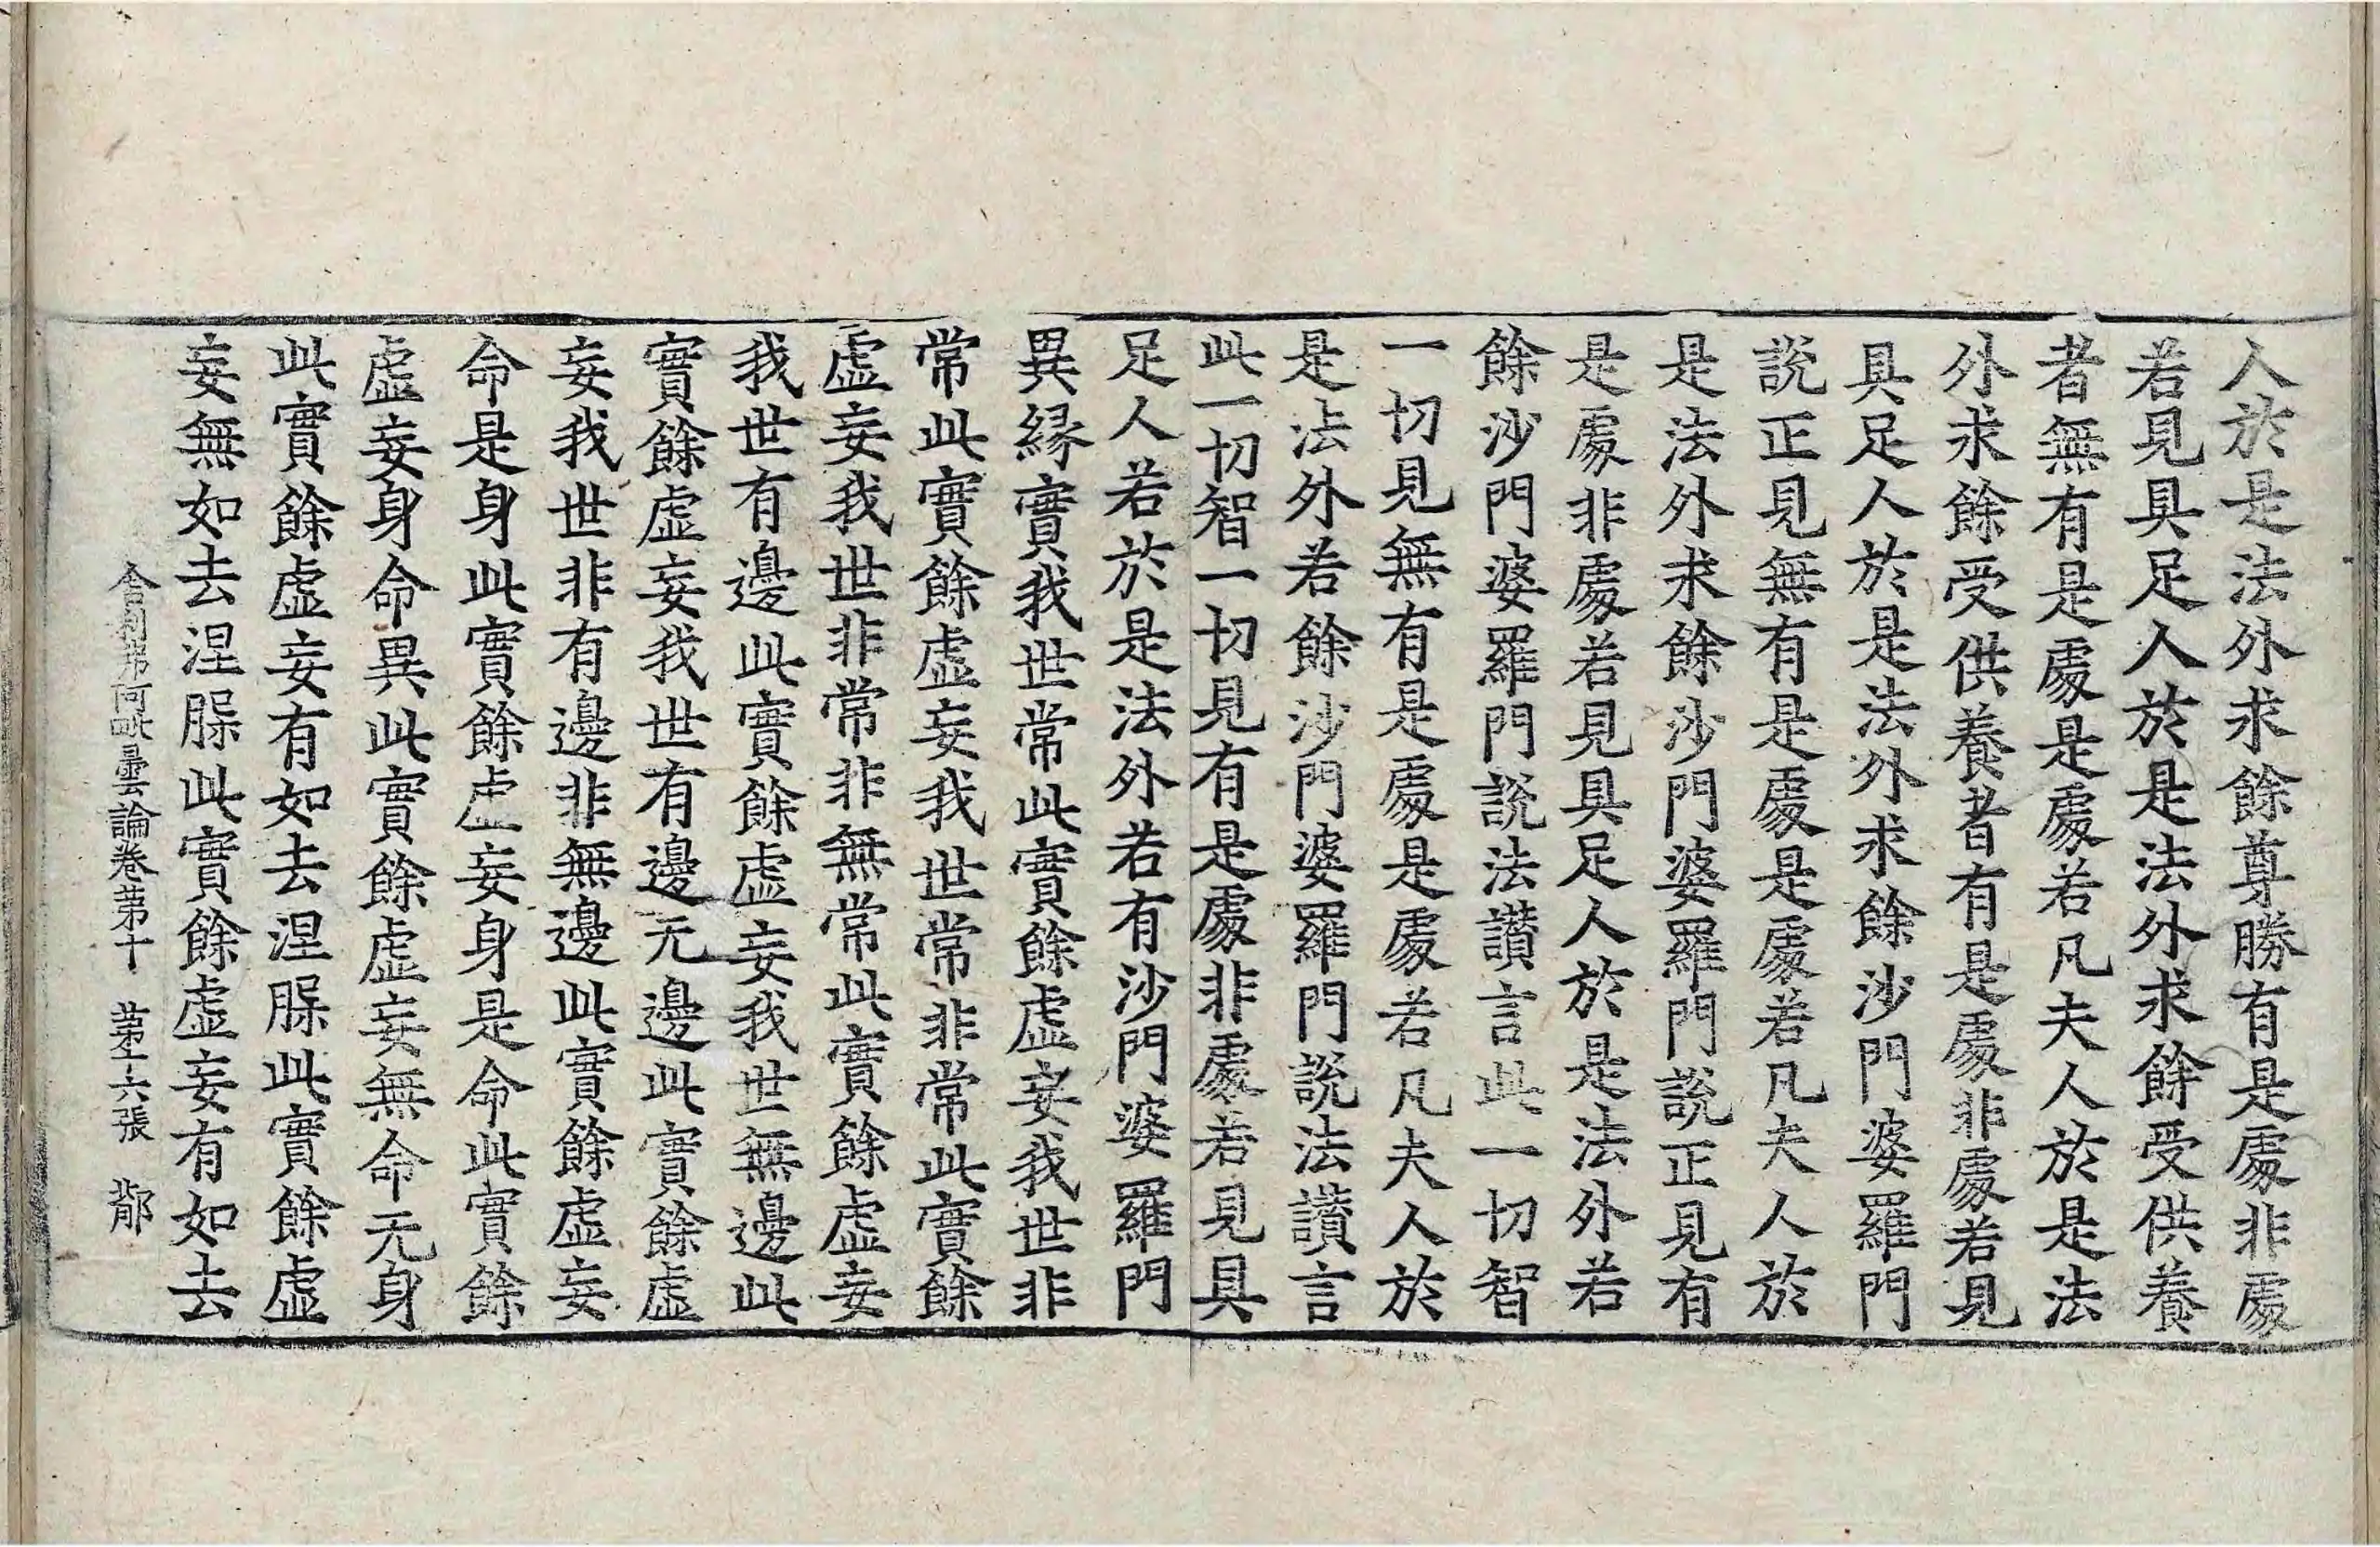 人於是法外求餘尊勝有是處非處
若見具足人於是法外求餘受供養
者無有是處是處若凡夫人於是法
外求餘受供養者有是處非處若見
具足人於是法外求餘沙門婆羅門
說正見無有是處是處若凡夫人於
是法外求餘沙門婆羅門說正見有
是處非處若見具足人於是法外若
餘沙門婆羅門說法讃言此一切智
一切見無有是處是處若凡夫人於
是法外若餘沙門婆羅門說法讃言
此一切智一切見有是處非處若見具
足人若於是法外若有沙門婆羅門
異緣實我世常此實餘虛妄我世非
常此實餘虛妄我世常非常此實餘
虛妄我世非常非無常此實餘虛妄
我世有邊此實餘虛妄我世無邊此
實餘虛妄我世有邊无邊此實餘虛
妄我世非有邊非無邊此實餘虛妄
命是身此實餘虛妄身是命此實餘
虛妄身命異此實餘虛妄無命无身
此實餘虛妄有如去涅槃此實餘虛
妄無如去涅槃此實餘虛妄有如去
舍利弗阿毗曇論卷苐十 苐十六張 邶